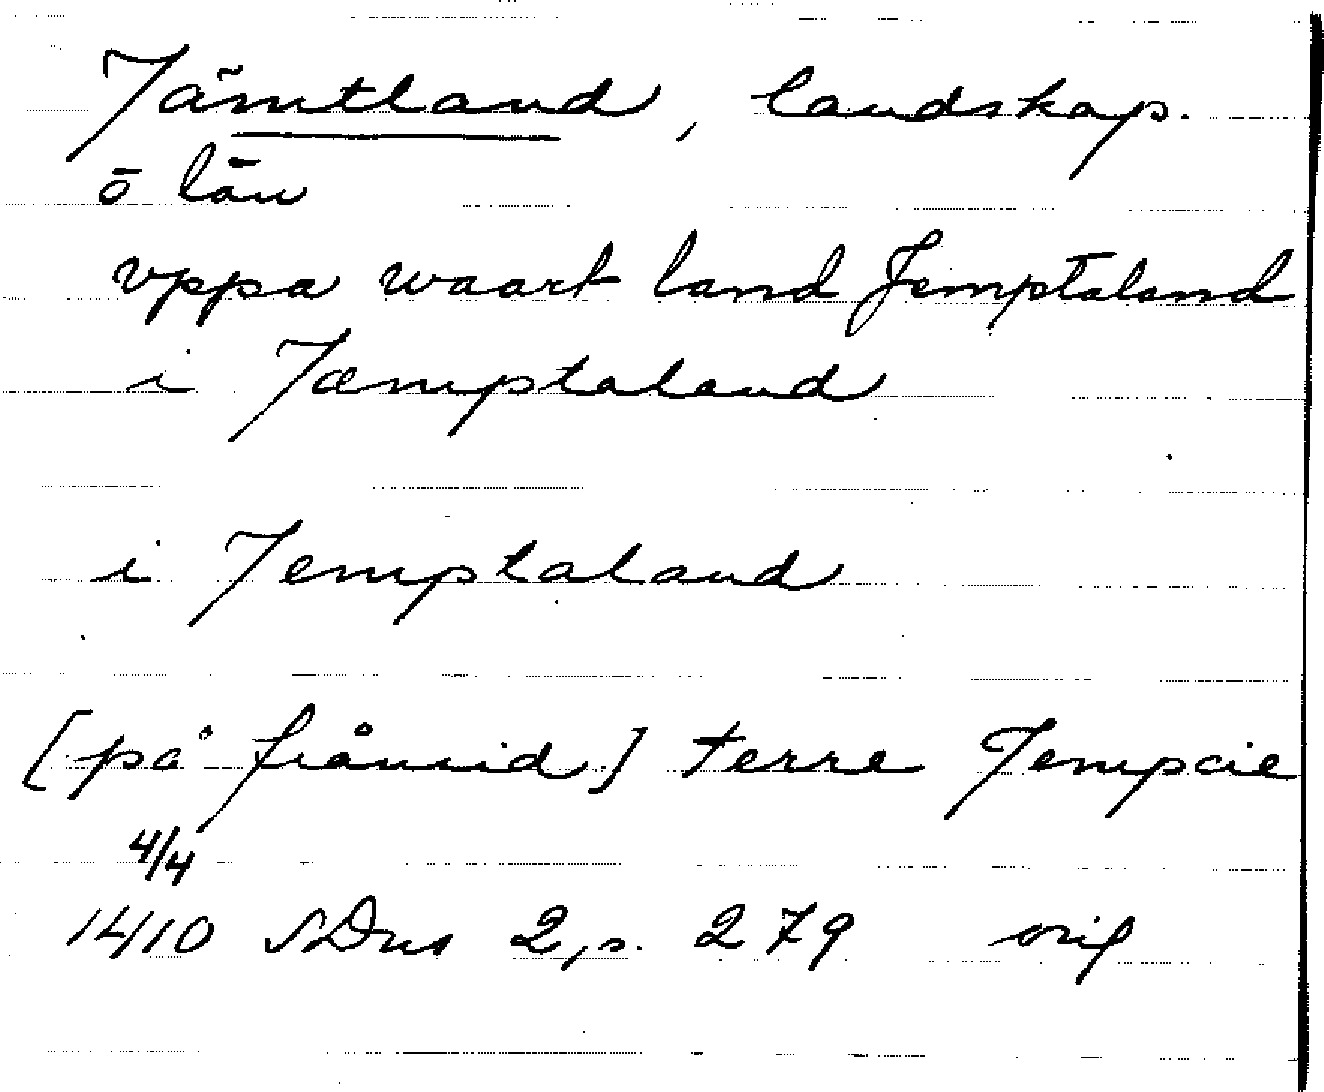 Jämtland, landskap.
o län
vppa waart land Jemptaland
i Jæmptaland
i Jemptaland
[på frånsid] terre Jempcie
4/4
1410 SDns 2, s. 279 orig